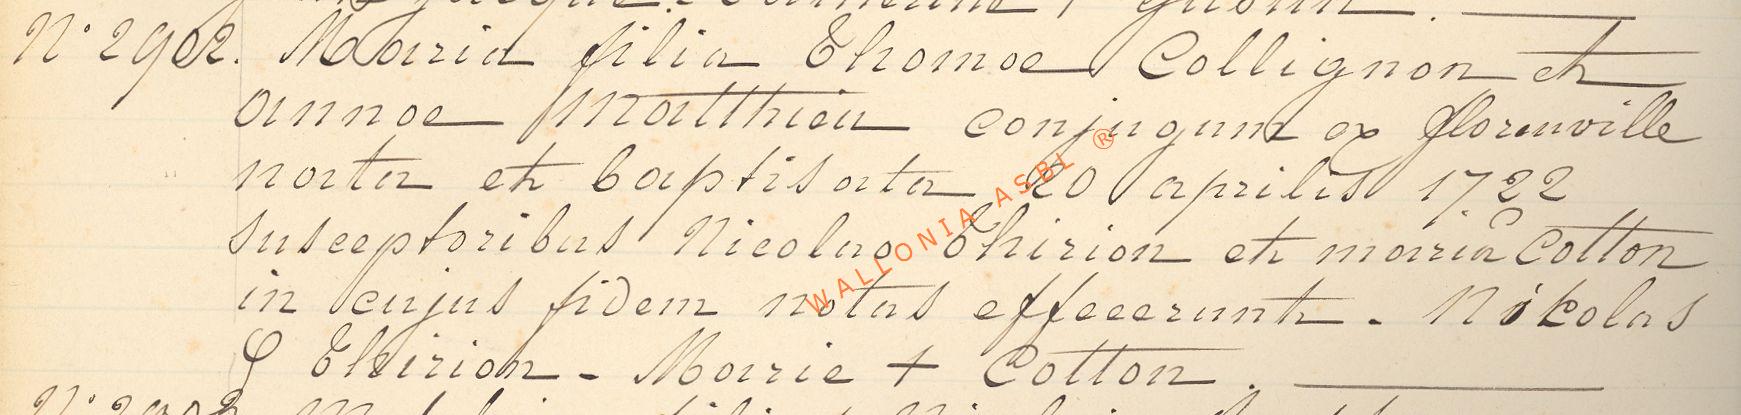 N° 2902. Maria filia Thomae Collignon et
annae Matthieu conjugum ex florenville
nata et baptisata 20 aprilis 1722
susceptoribus Nicolao Thirion et maria Cotton
in cujus fidem notas effecerunt. Nikolas
Thirion - Marie + Cotton.
WALLONIA ASBL ®